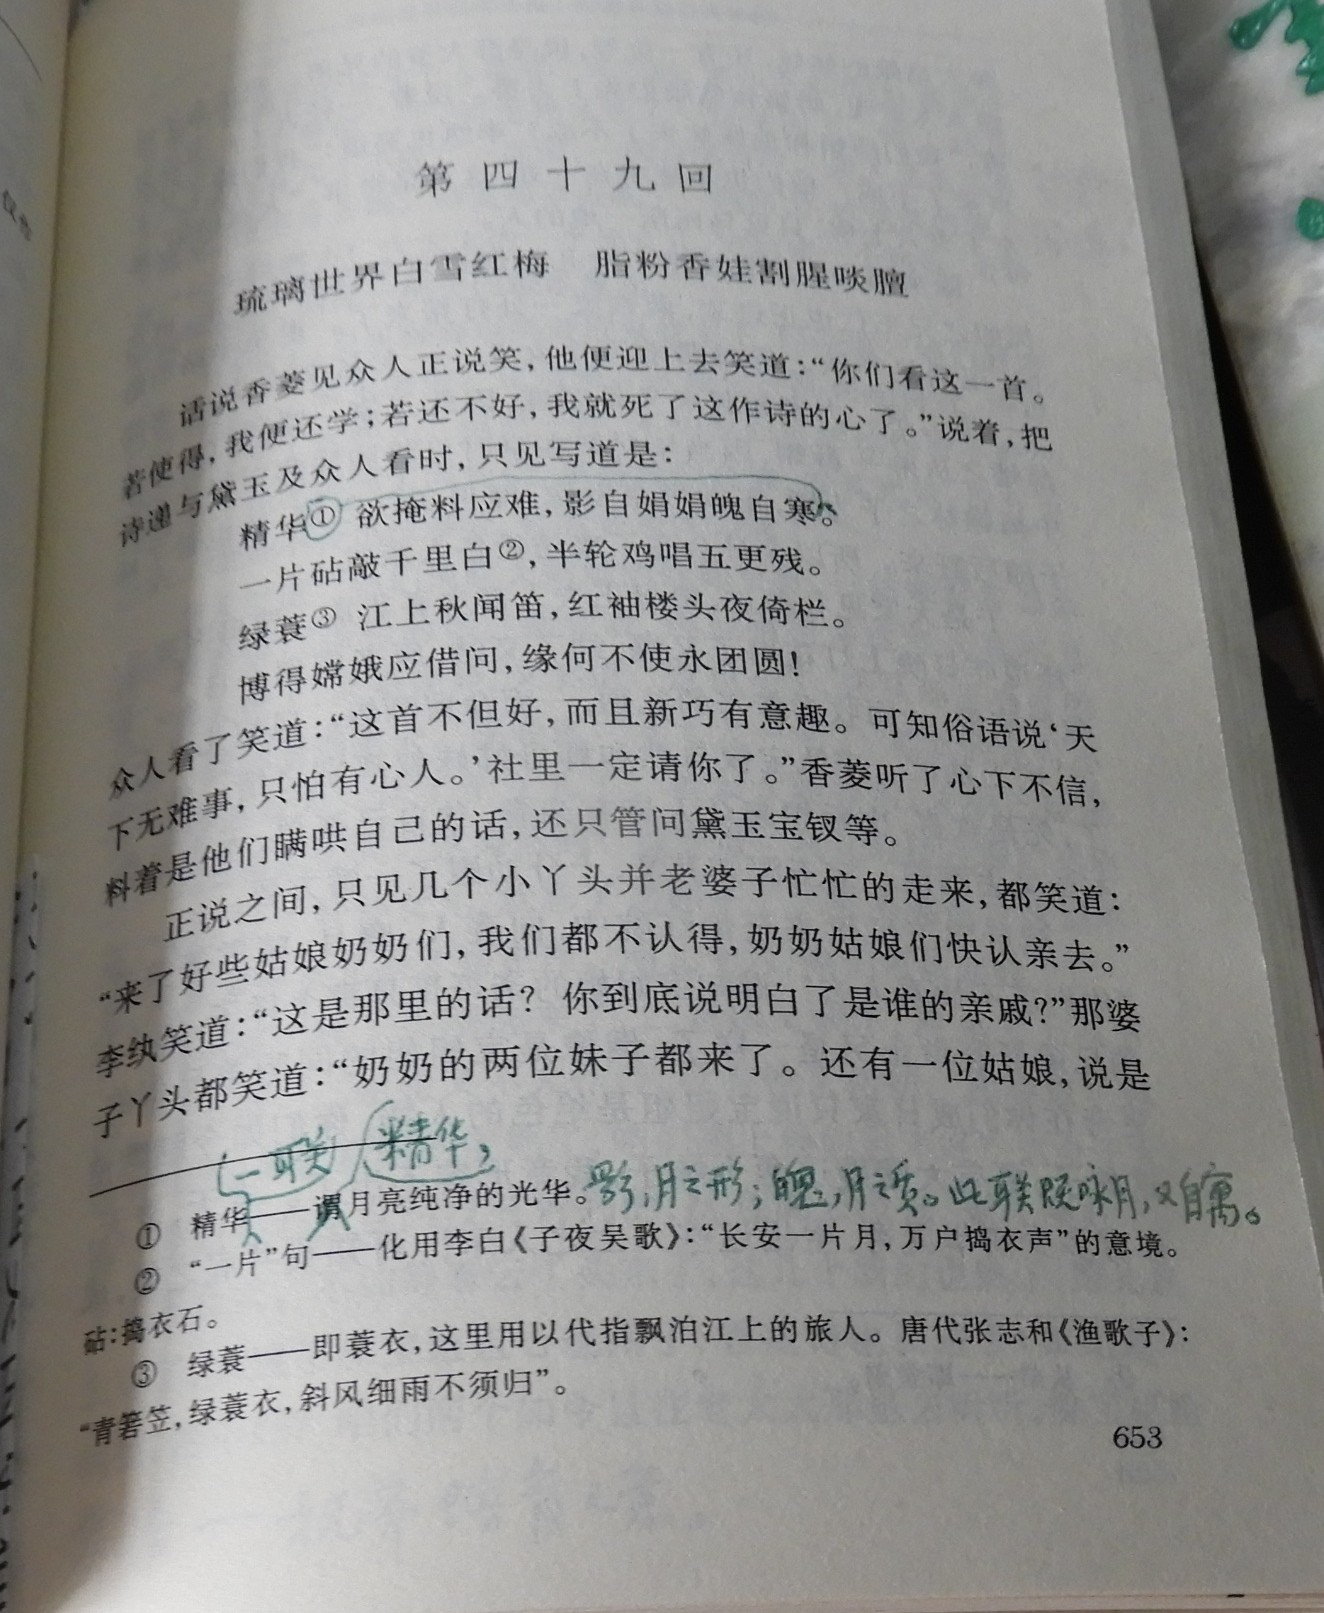 第四十九回
琉璃世界白雪红梅　脂粉香娃割腥啖膻
话说香菱见众人正说笑，他便迎上去笑道：“你们看这一首。
若使得，我便还学；若还不好，我就死了这作诗的心了。”说着，把
诗递与黛玉及众人看时，只见写道是：
精华① 欲掩料应难，影自娟娟魄自寒。
一片砧敲千里白②，半轮鸡唱五更残。
绿蓑③ 江上秋闻笛，红袖楼头夜倚栏。
博得嫦娥应借问，缘何不使永团圆！
众人看了笑道：“这首不但好，而且新巧有意趣。可知俗语说‘天
下无难事，只怕有心人。’社里一定请你了。”香菱听了心下不信，
料着是他们瞒哄自己的话，还只管问黛玉宝钗等。
正说之间，只见几个小丫头并老婆子忙忙的走来，都笑道：
“来了好些姑娘奶奶们，我们都不认得，奶奶姑娘们快认亲去。”
李纨笑道：“这是那里的话？你到底说明白了是谁的亲戚？”那婆
子丫头都笑道：“奶奶的两位妹子都来了。还有一位姑娘，说是
一联 精华，
① 精华——谓月亮纯净的光华。影，月之形；魄，月之质。此联既咏月，又自寓。
② “一片”句——化用李白《子夜吴歌》：“长安一片月，万户捣衣声”的意境。
砧：捣衣石。
③ 绿蓑——即蓑衣，这里用以代指飘泊江上的旅人。唐代张志和《渔歌子》：
“青箬笠，绿蓑衣，斜风细雨不须归”。
653